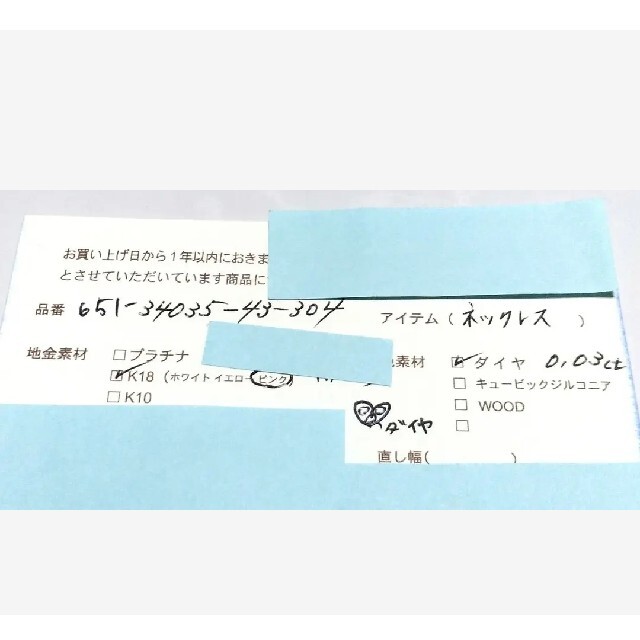 お買い上げ日から1年以内におきま
とさせていただいています商品に
品番 651-34035-43-304
アイテム ( ネックレス )
地金素材 □プラチナ
☑K18 (ホワイト イエロー ピンク)
□K10
素材 ☑ ダイヤ 0.03ct
□ キュービックジルコニア
□ WOOD
□
ダイヤ
直し幅( )